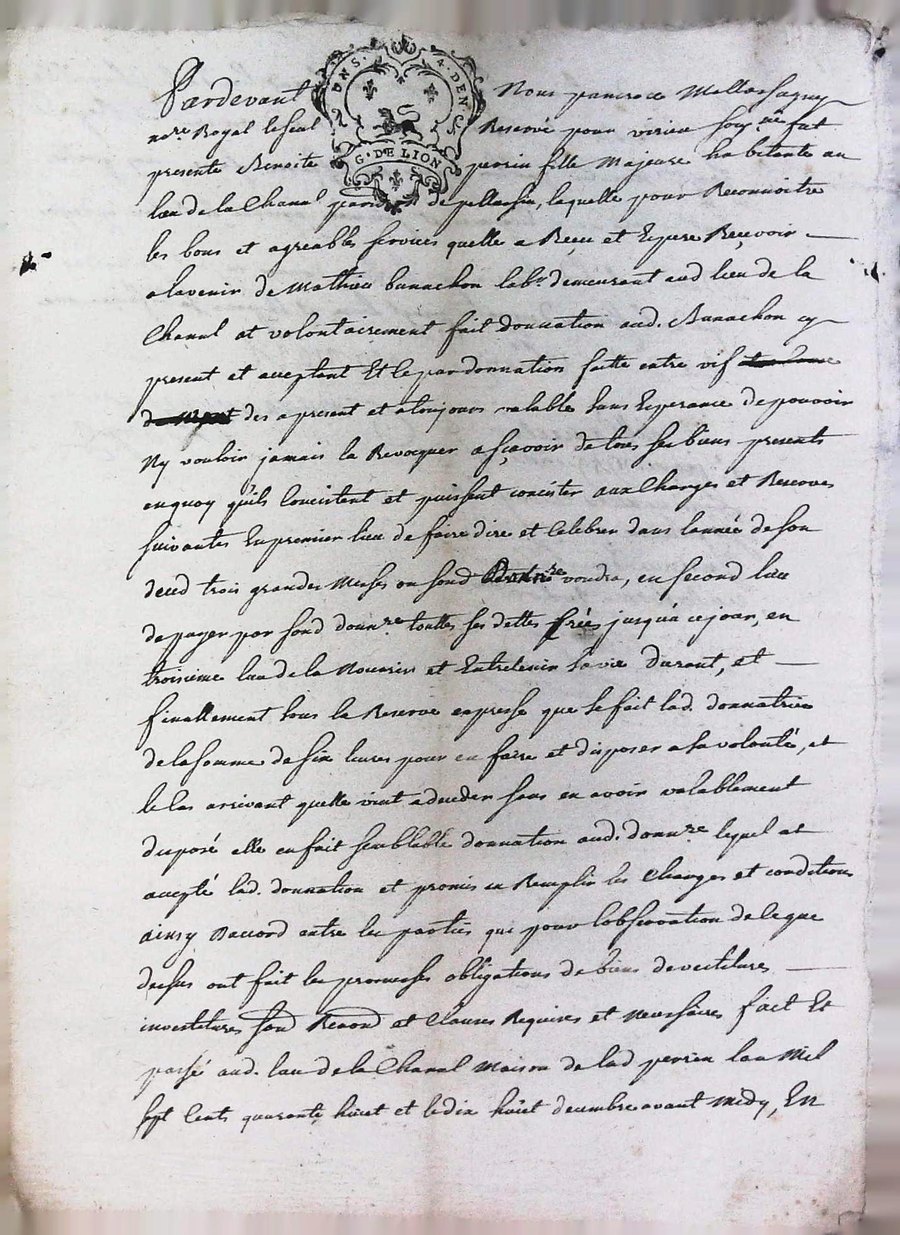 D N S. 4. DEN.
G. DE LION
Pardevant Nous pancrace Mallassagny
no.re Royal le seul Reservé pour virieu soug.né fut
presente Benoite perrin fille Majeure habitante au
lieu de la Chanal de pellussin, laquelle pour Reconnoitre
les bons et agreables services quelle a Receu et Espere Reçevoir
a lavenir de Mathieu banachon lab.r demeurant aud lieu de la
Chanal at volontairement fait donnation aud. Banachon cy
present et acceptant Et ce par donnation faitte entre vif
des a present et atoujours valable sans Esperance de pouvoir
Ny vouloir jamais la Revocquer asçavoir de tous ses biens presents
en quoy quils Concistent et puissent concister aux Charges et Reserves
suivantes En premier lieu de faire dire et Celebrer dans lannée de son
deced trois grandes Messes ou sond voudra, en second lieu
de payer par sond donn.re touttes ses dettes jusqua ce jour, en
troisieme lieu de la Nourrir et Entretenir sa vie durant, et
finallement sous la Reserve expresse que se fait lad. donnatrice
de la somme de six livres pour en faire et disposer a sa volonté, et
le Cas arrivant quelle vint a deceder sans en avoir valablement
disposé elle en fait semblable donnation aud. donn.re lequel at
accepté lad. donnation et promis en Remplir les Charges et conditions
ainsy Daccord entre les parties qui pour lobservation de ce que
dessus ont fait les promesses obligations de biens devestitures
investitures fond Renond et Clauses Requises et Necessaires fait Et
passé aud. lieu de la Chanal Maison de lad perrin lan Mil
sept Cents quarante huict et le dix huict decembre avant Midy, En